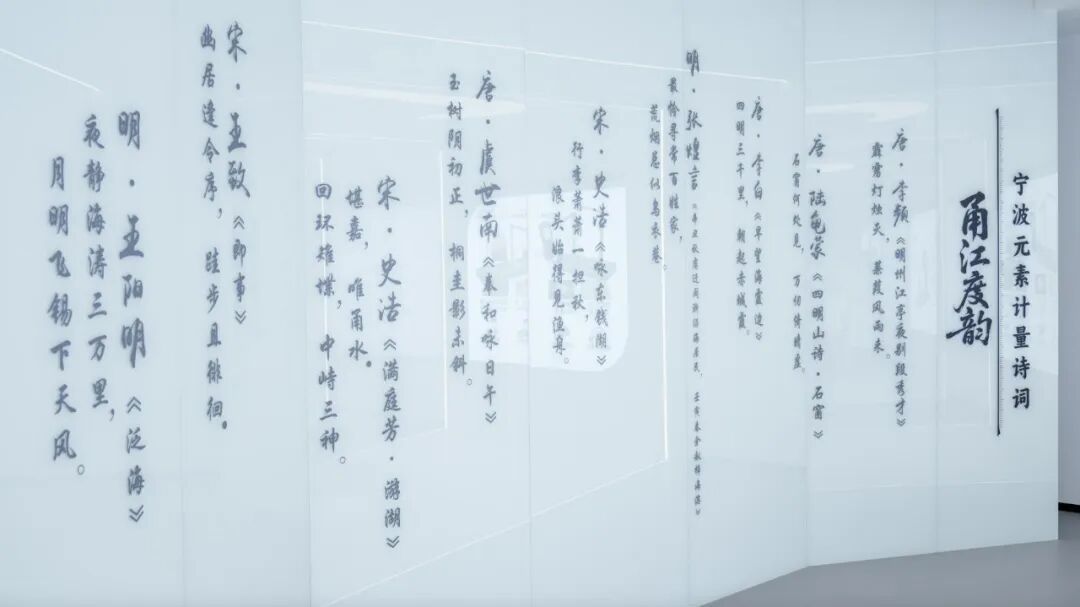 宁波元素计量诗词
甬江度韵
唐·李频《明州江亭夜别段秀才》
霹雳灯烛灭，蒹葭风雨来。
唐·陆龟蒙《四明山诗·石窗》
石窗何处见，万仞倚晴虚。
唐·李白《早望海霞边》
四明三千里，朝起赤城霞。
明·张煌言《辛丑秋虏迁闽浙沿海居民，壬寅春余舣棹海滨》
最怜寻常百姓家，
荒烟总似乌衣巷。
宋·史浩《咏东钱湖》
行李萧萧一担秋，
浪头始得见渔舟。
唐·虞世南《奉和咏日午》
玉树阴初正，桐圭影未斜。
宋·史浩《满庭芳·游湖》
堪嘉，唯甬水。
回环雉堞，中峙三神。
宋·王致《即事》
幽居逢令序，跬步且徘徊。
明·王阳明《泛海》
夜静海涛三万里，
月明飞锡下天风。